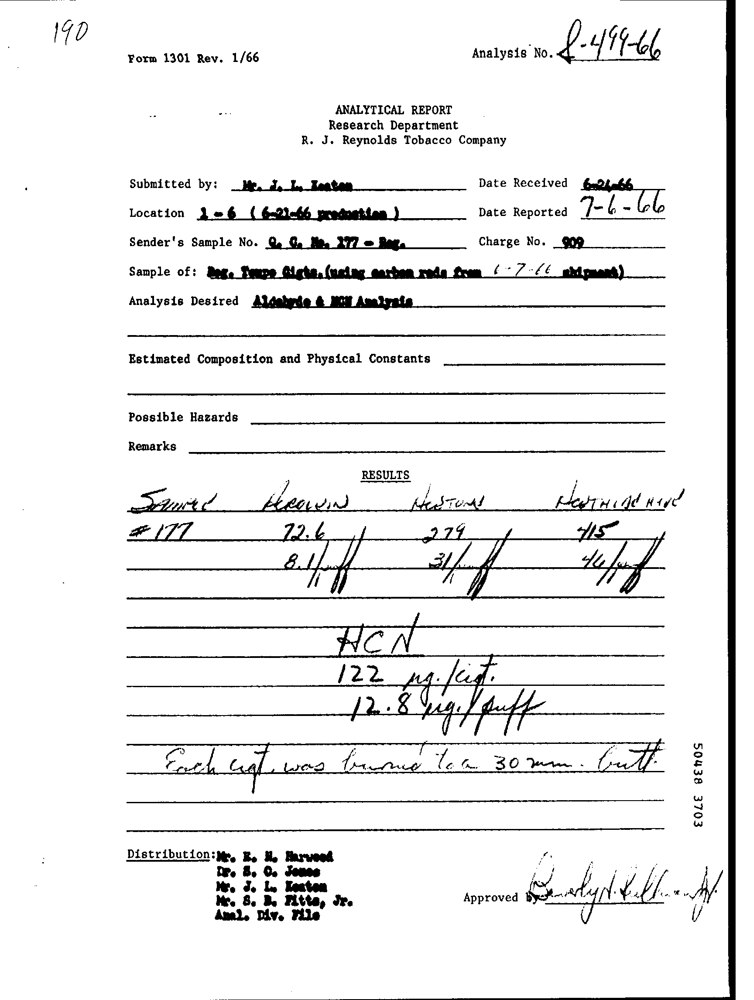 190
Form 1301 Rev. 1/66
Analysis No. L-499-66
ANALYTICAL REPORT
Research Department
R. J. Reynolds Tobacco Company
Submitted by: Mr. J. L. Keaton Date Received 6-24-66
Location 1 - 6 ( 6-21-66 production ) Date Reported 7-6-66
Sender's Sample No. Q. C. No. 177 - Reg. Charge No. 909
Sample of: Reg. Tempo Cigts. (using carbon rods from 6-7-66 shipment)
Analysis Desired Aldehyde & HCN Analysis
Estimated Composition and Physical Constants
Possible Hazards
Remarks
RESULTS
Sample Acrolein
#177 72.6 279 415
8.1/puff 31/puff 46/puff
HCN
122 µg./cigt.
12.8 µg./puff
Each cigt. was burned to a 30 mm. butt.
50438 3703
Distribution: Mr. E. H. Harwood
Dr. S. O. Jones
Mr. J. L. Keaton
Mr. S. B. Fitts, Jr.
Anal. Div. File
Approved by